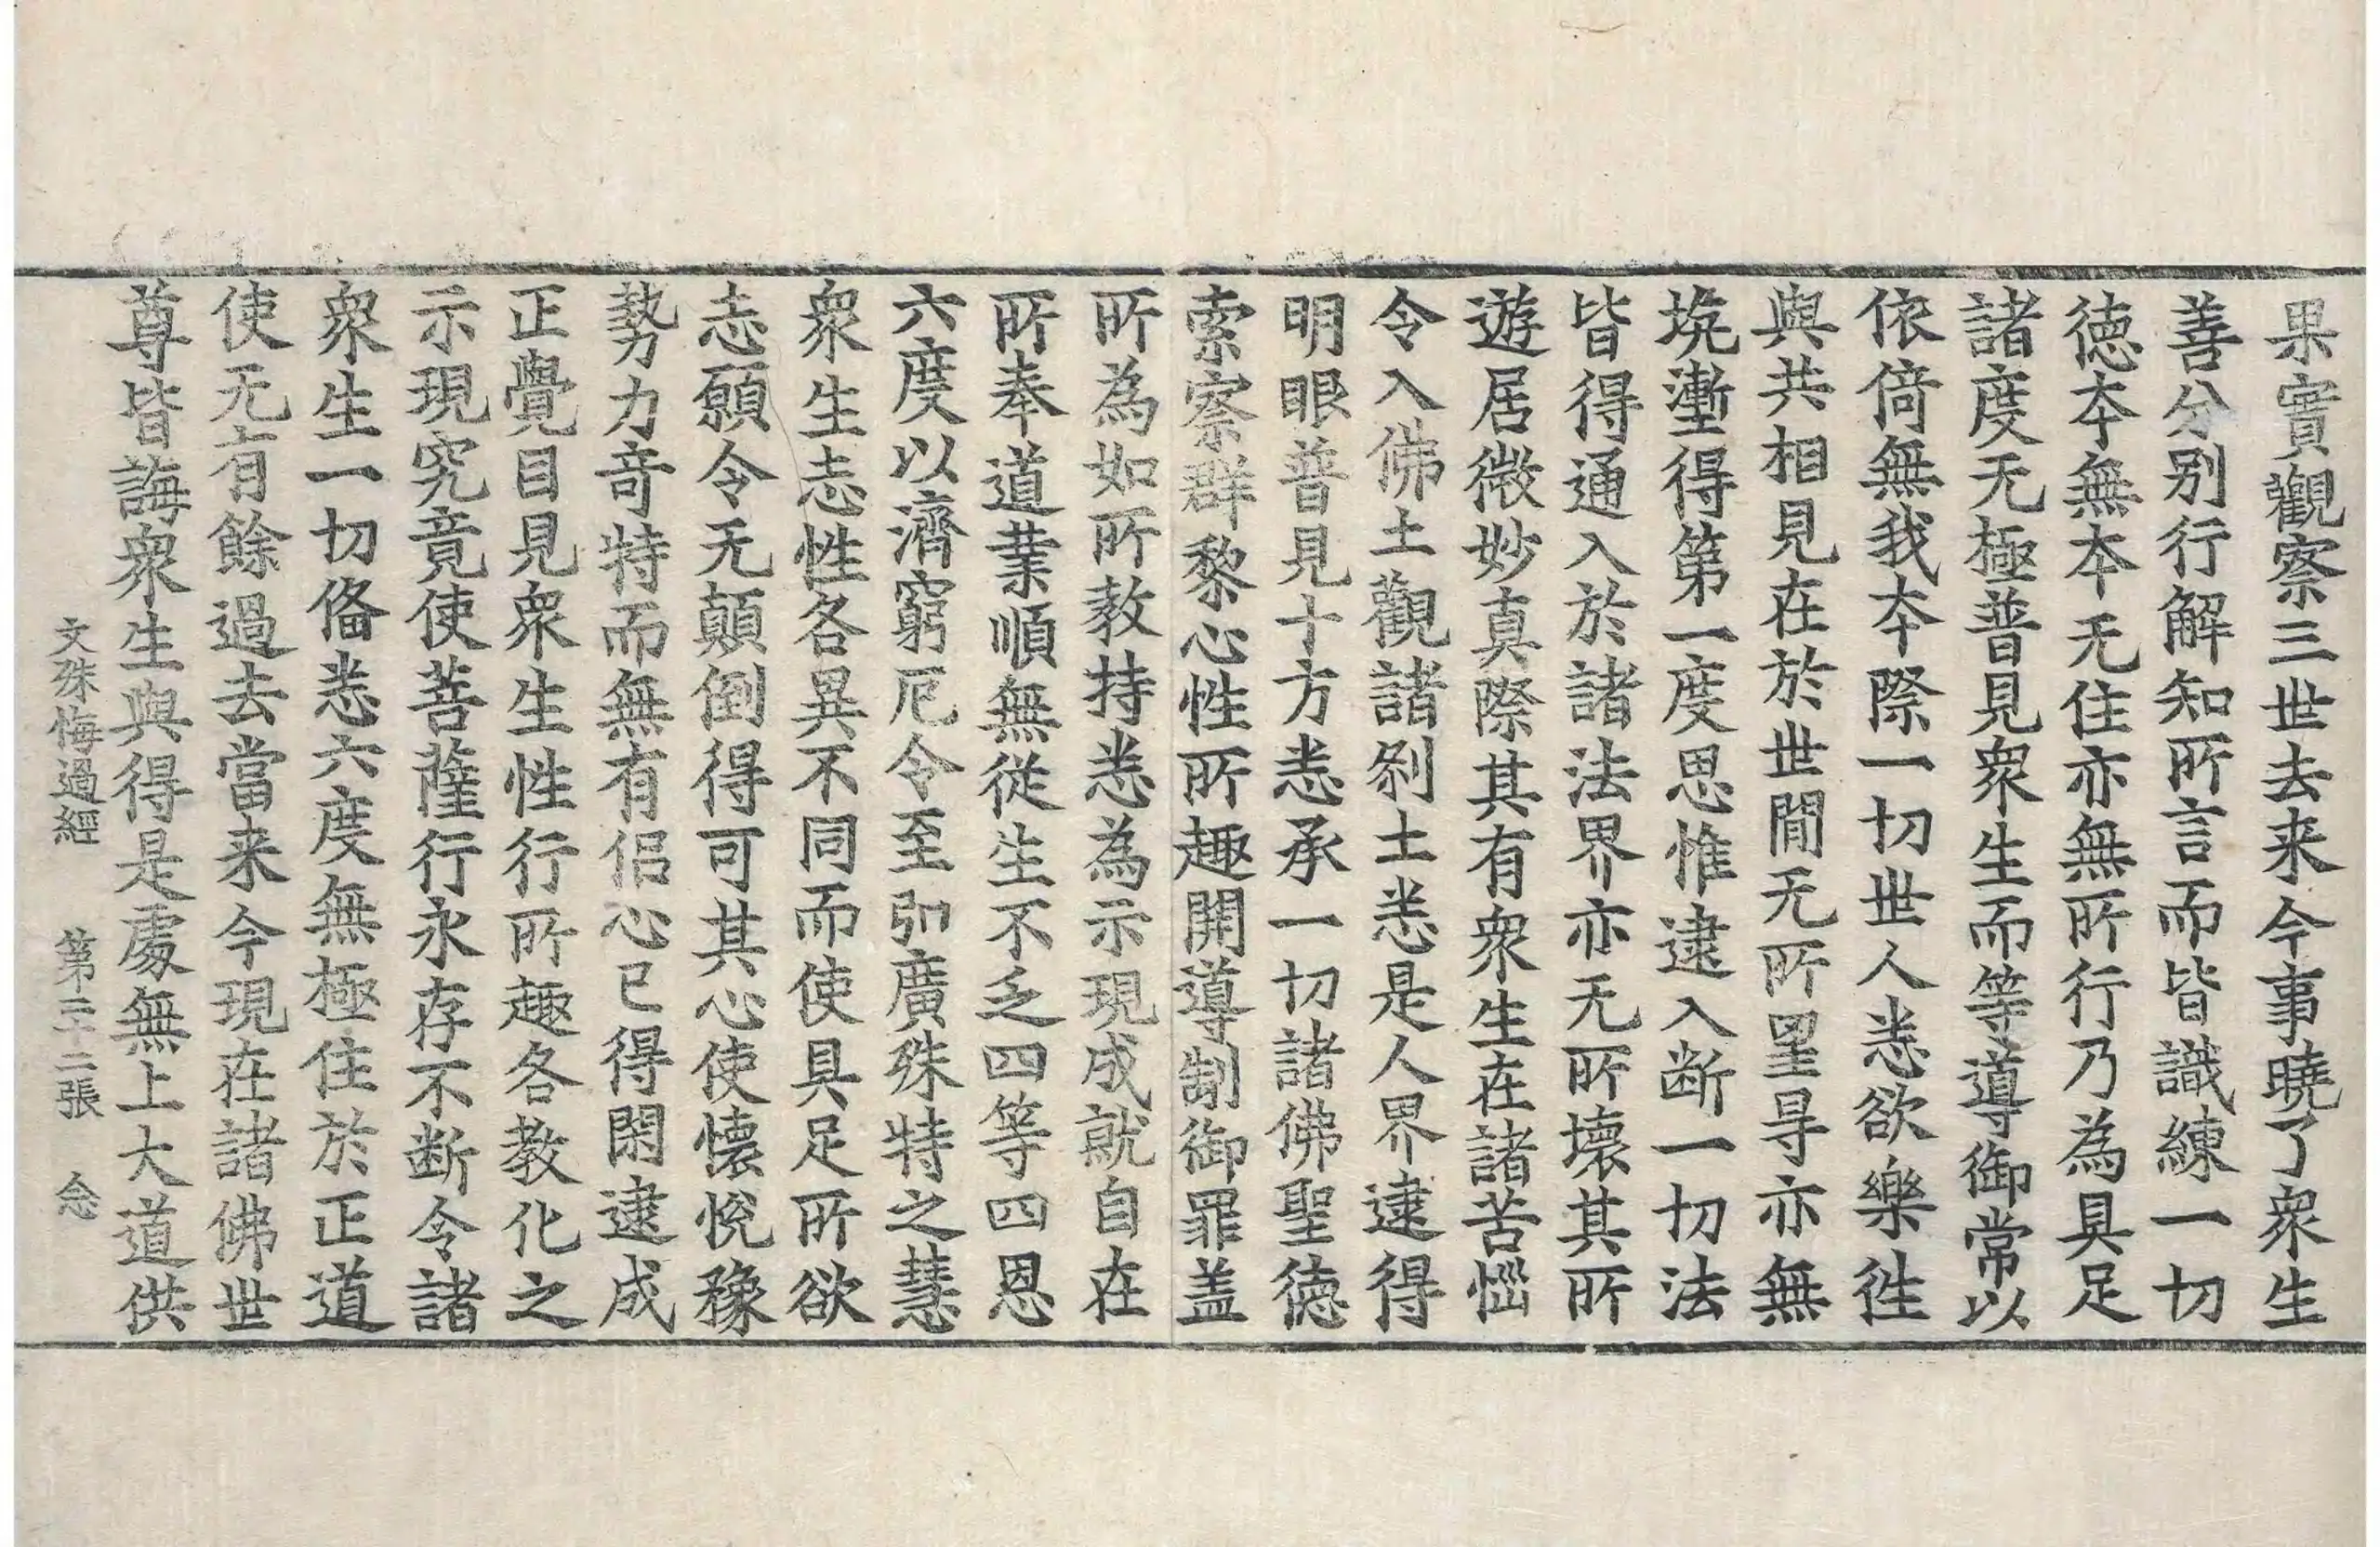 果實觀察三世去来今事曉了衆生
善分别行解知所言而皆識練一切
徳夲無夲无住亦無所行乃為具足
諸度无極普見衆生而等導御常以
依倚無我夲際一切世人悉欲樂徃
與共相見在於世閒无所罣㝵亦無
塊壍得第一度思惟逮入断一切法
皆得通入於諸法界亦无所壞其所
遊居微妙真際其有衆生在諸苦惱
令入佛土觀諸刹土悉是人界逮得
明眼普見十方悉承一切諸佛聖徳
索察群黎心性所趣開導制御罪盖
所為如所教持悉為示現成就自在
所奉道業順無從生不乏四等四恩
六度以濟窮厄令至弘廣殊特之慧
衆生志性各異不同而使具足所欲
志願令无顛倒得可其心使懷悅豫
勢力竒特而無有侣心已得閑逮成
正覺目見衆生性行所趣各教化之
示現究竟使菩薩行永存不断令諸
衆生一切俻悉六度無極住於正道
使无有餘過去當来今現在諸佛世
尊皆誨衆生與得是䖏無上大道供
文殊悔過經 第二十二張 念